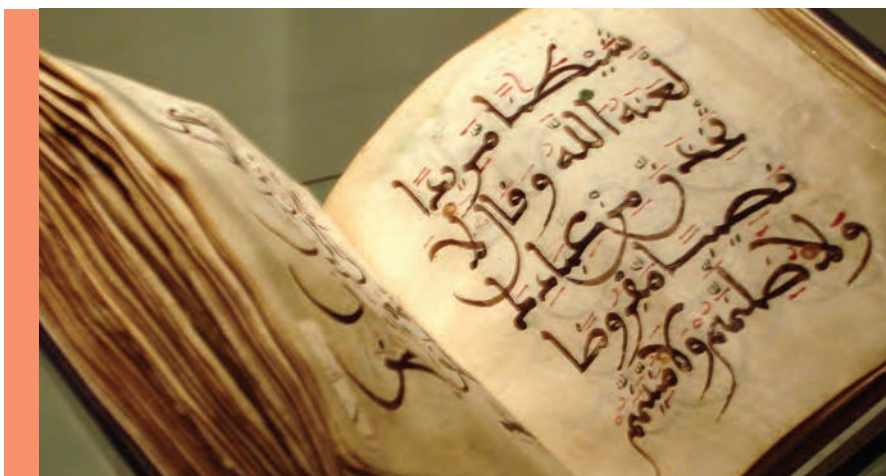 شَيْطَٰنًا مَّرِيدًا
لَّعَنَهُ اللَّهُ وَقَالَ لَأَ
تَّخِذَنَّ مِنْ عِبَادِكَ
نَصِيبًا مَّفْرُوضًا
وَلَأُضِلَّنَّهُمْ وَلَأُمَنِّيَنَّهُمْ